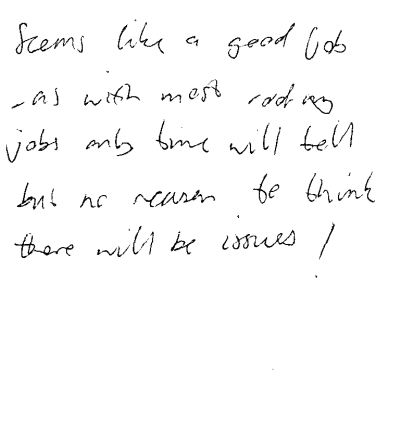 Seems like a good job
- as with most roofing
jobs only time will tell
but no reason to think
there will be issues!